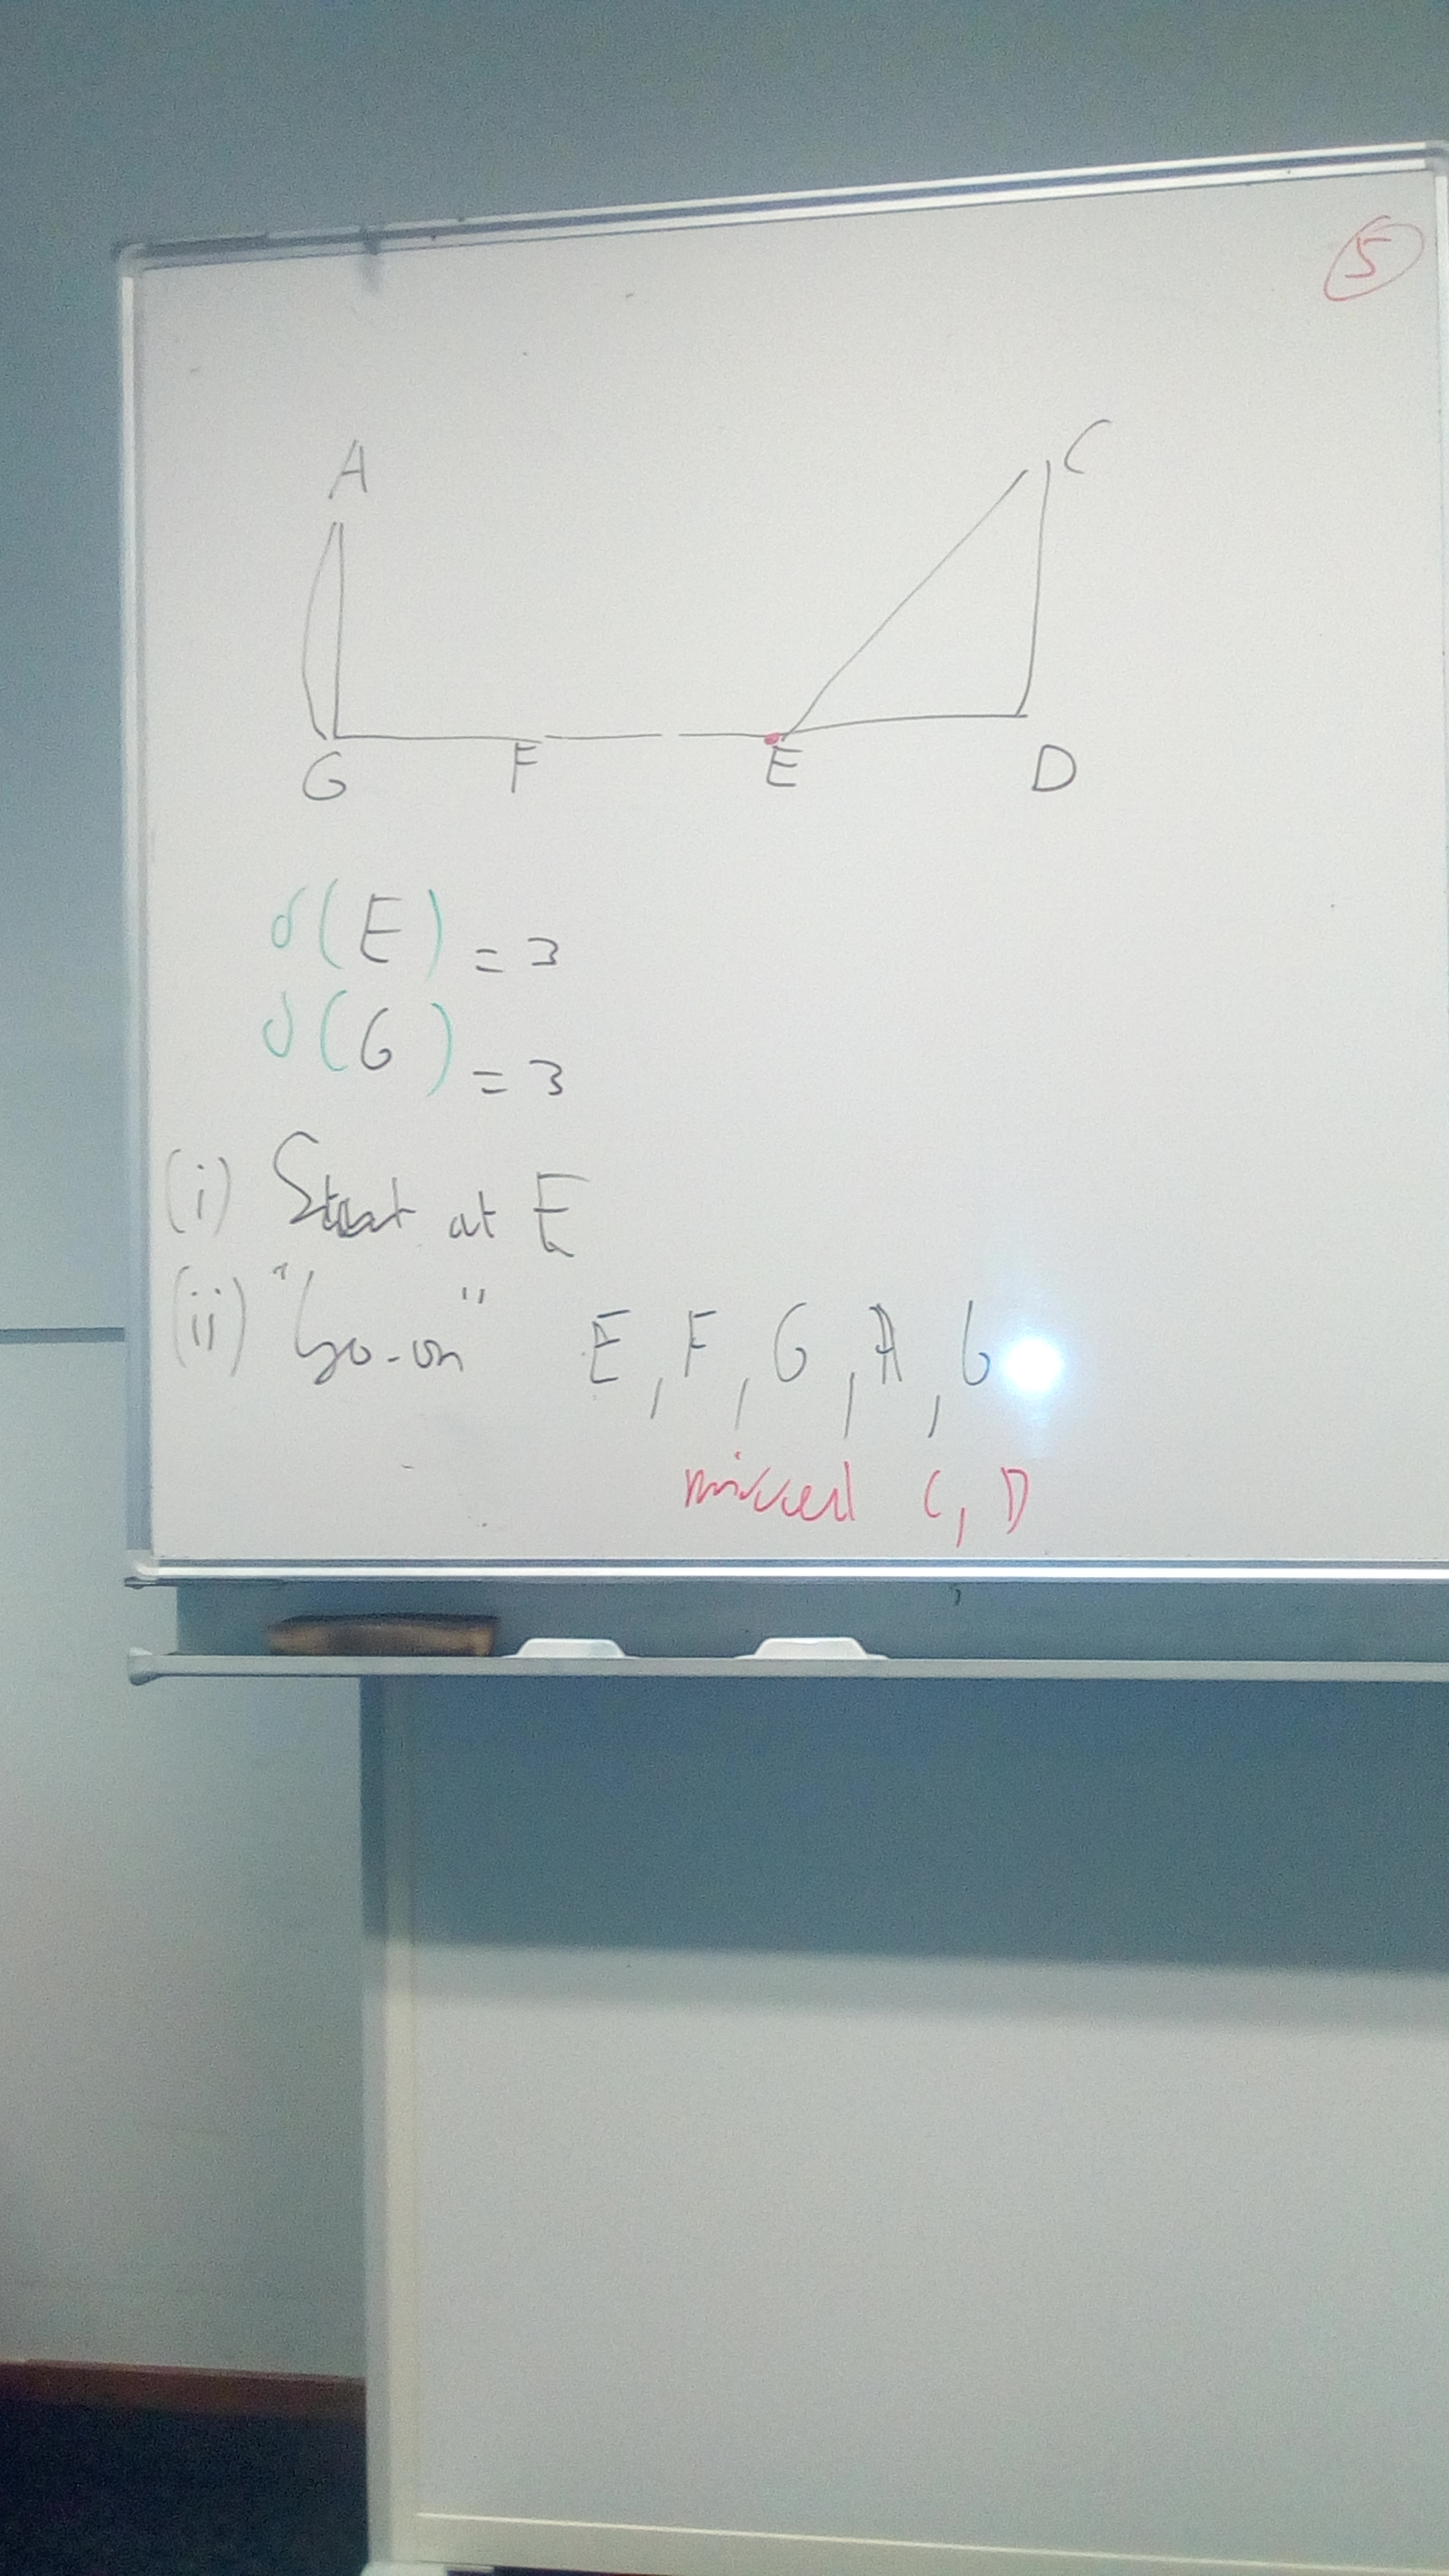 5
A C
G F E D
δ(E) = 3
δ(G) = 3
(i) Start at E
(ii) "Go-on" E, F, G, A, G
missed C, D